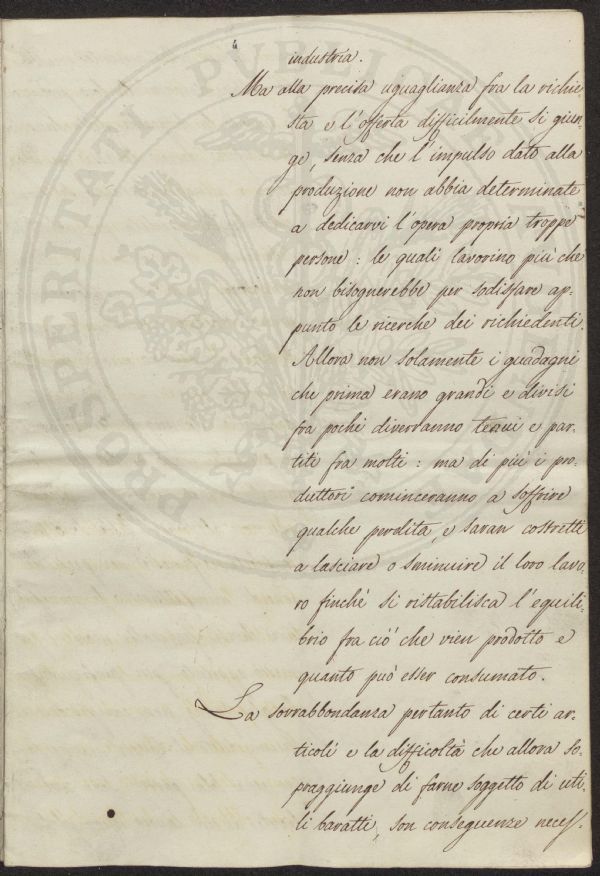 industria.
Ma alla precisa uguaglianza fra la richie-
sta e l'offerta difficilmente si giun-
ge, senza che l'impulso dato alla
produzione non abbia determinate
a dedicarvi l'opera propria troppe
persone: le quali lavorino più che
non bisognerebbe per sodisfare ap-
punto le ricerche dei richiedenti.
Allora non solamente i guadagni
che prima erano grandi e divisi
fra pochi diverranno tenui e par-
titi fra molti: ma di più i pro-
duttori cominceranno a soffrire
qualche perdita, e saran costretti
a lasciare o sminuire il loro lavo-
ro finchè si ristabilisca l'equili-
brio fra ciò che vien prodotto e
quanto può esser consumato.
La sovrabbondanza pertanto di certi ar-
ticoli e la difficoltà che allora so-
praggiunge di farne soggetto di uti-
li baratti, son conseguenze necess.
PROSPERITATI PVBLICAE